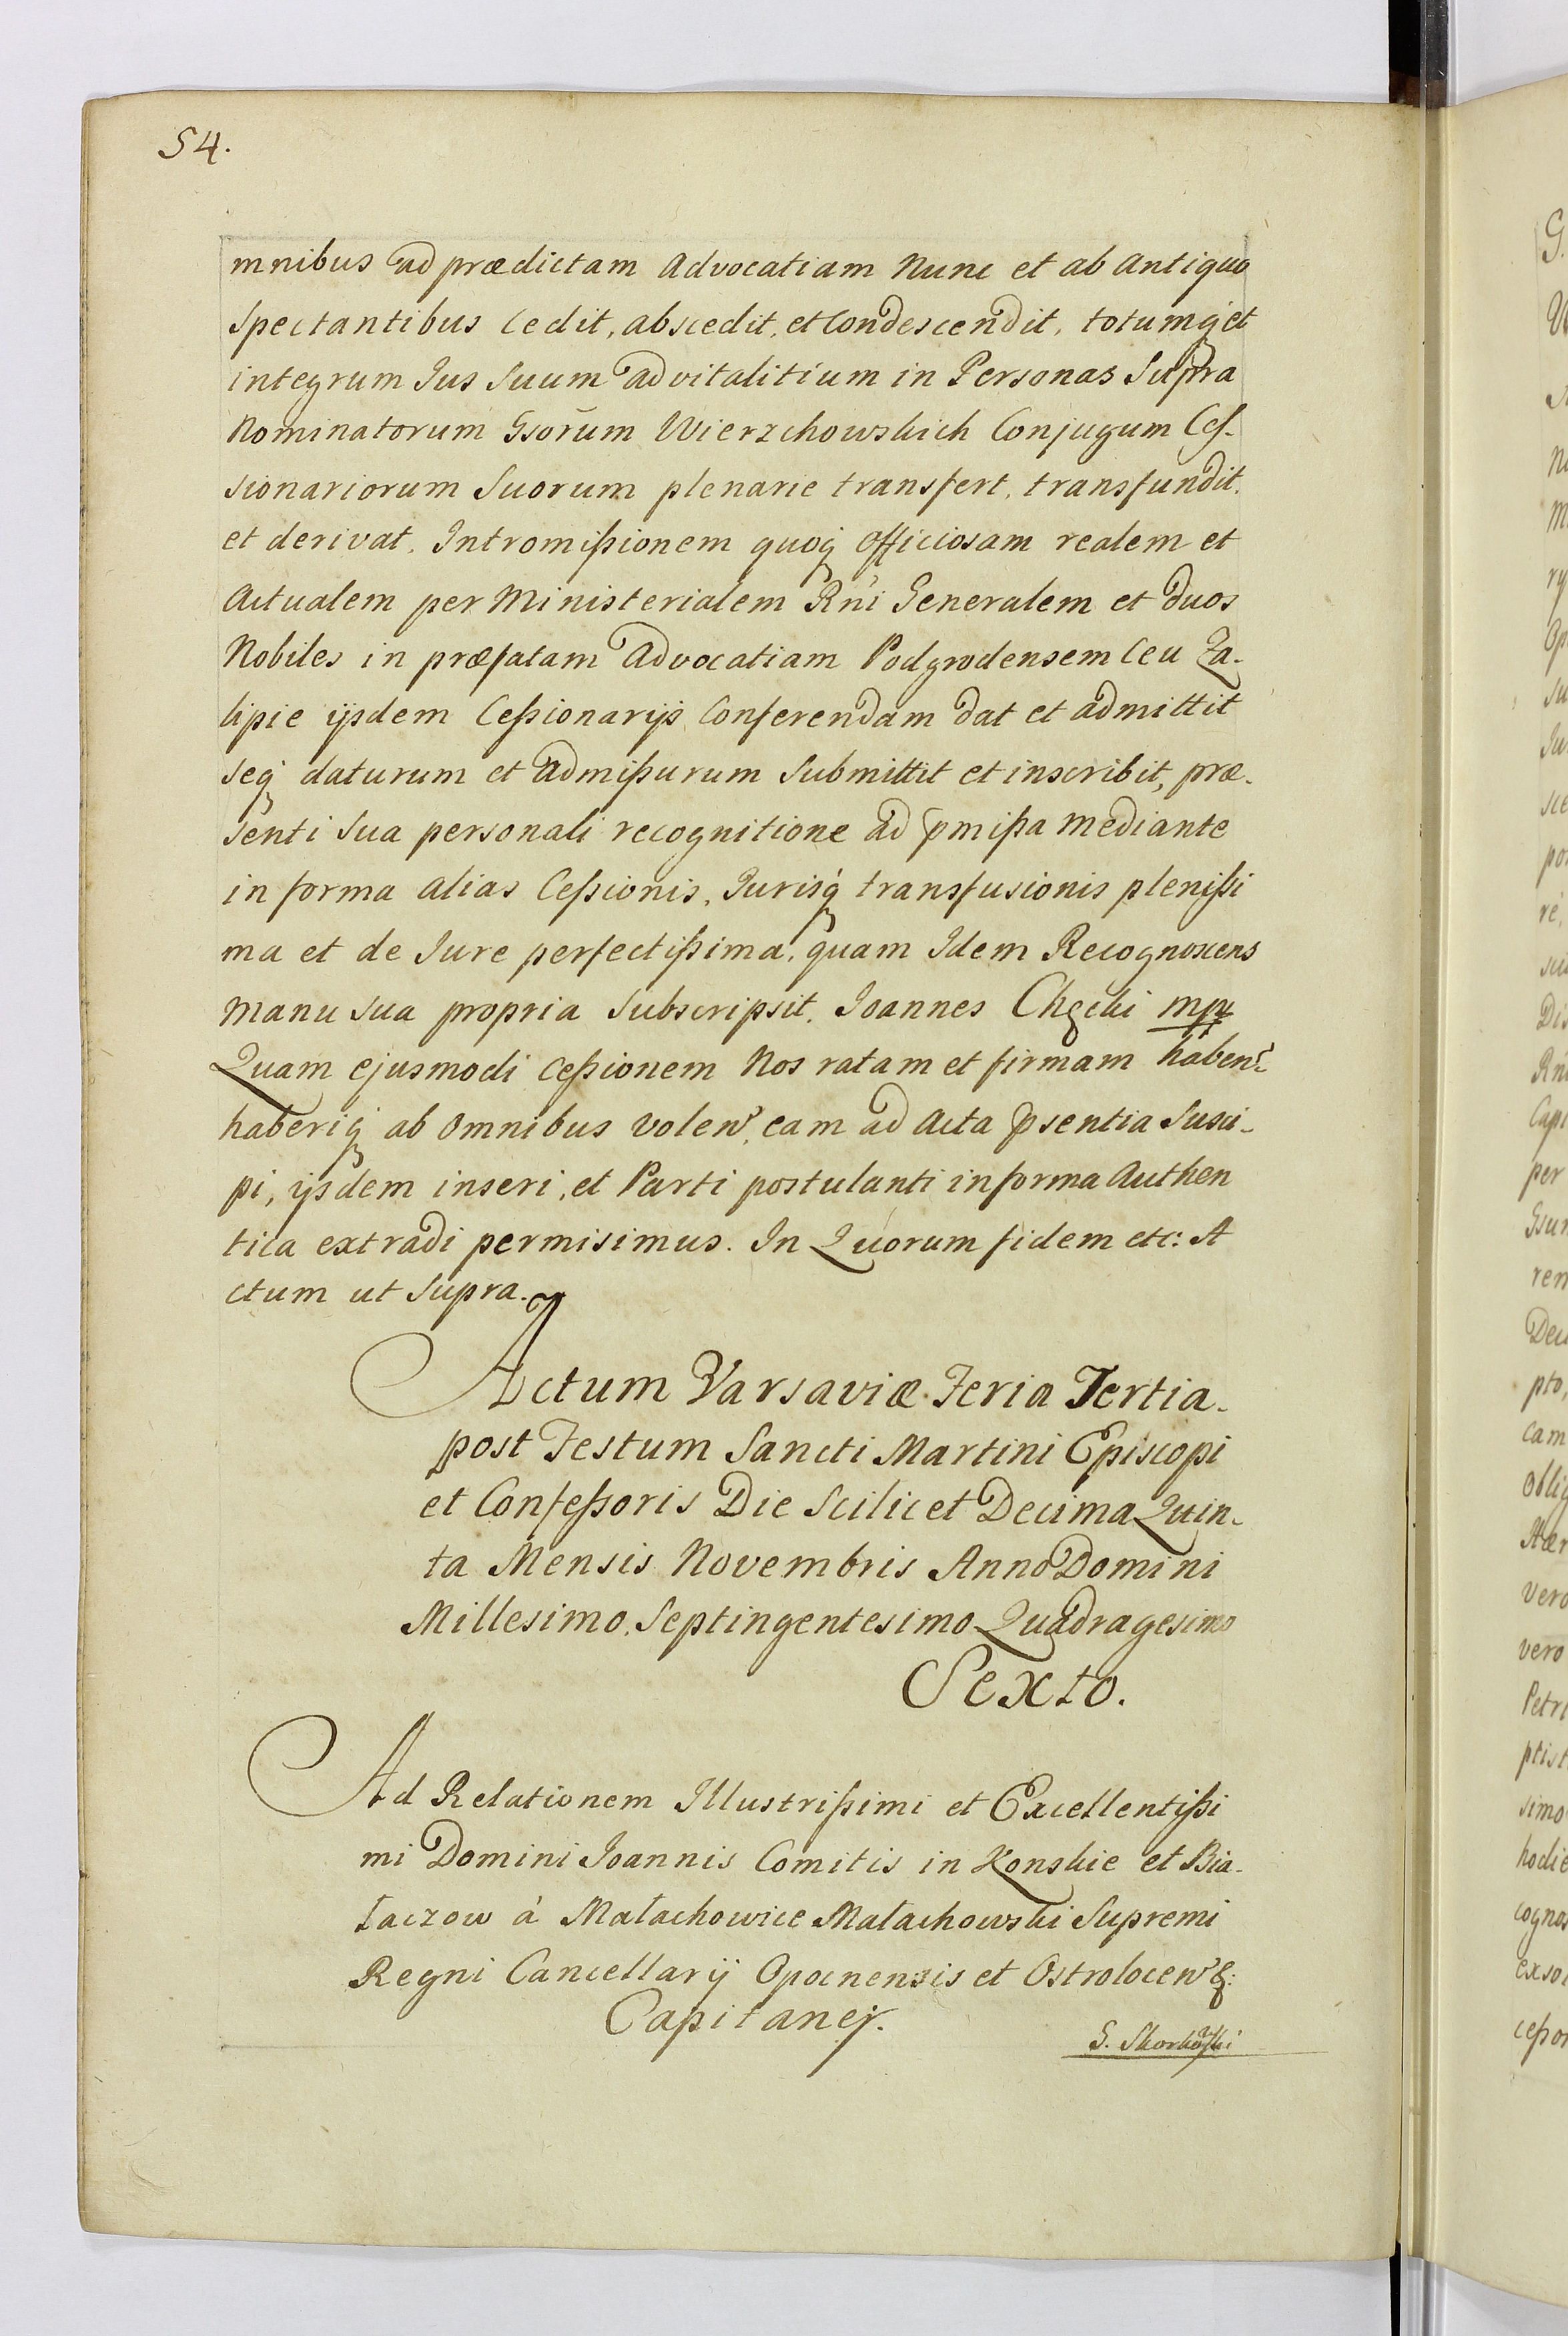 54.
mnibus ad prædictam Advocatiam Nunc et ab Antiquo
Spectantibus Cedit, abscedit, et Condescendit, totumq́ et
integrum Jus Suum advitalitium in Personas Supra
Nominatorum Gsorūm Wierzchowskich Conjugum Ceſ-
sionariorum Suorum plenarie transfert, transfundit,
et derivat. Intromißionem quoq́ officiosam realem et
Actualem per Ministerialem Rn̄i Generalem et duos
Nobiles in præfatam Advocatiam Podgrodensem Ceu Za-
lipie ijsdem Ceßionarijs Conferendam dat et admittit
seq́ daturum et admißurum Submittit et inscribit, præ-
senti Sua personali recognitione ad pmißa mediante
in forma alias Ceßionis, Jurisq́ transfusionis plenißi
ma et de Jure perfectißima, quam Idem Recognoscens
manu sua propria Subscripsit. Joannes Chęcki mpp
Quam ejusmodi Ceßionem Nos ratam et firmam haben̄
haberiq́ ab omnibus volen̄, eam ad Acta psentia Susci-
pi, ijsdem inseri, et Parti postulanti in forma Authen
tica extradi permisimus. In Quorum fidem etc: A
ctum ut Supra.
Actum Varsaviæ Feria Tertia
post Festum Sancti Martini Episcopi
et Confeßoris Die Scilicet Decima Quin-
ta Mensis Novembris Anno Domini
Millesimo Septingentesimo Quadragesimo
Sexto.
Ad Relationem Illustrißimi et Excellentißi
mi Domini Joannis Comitis in Konskie et Bia-
łaczow à Małachowice Małachowski Supremi
Regni Cancellarij Opocnensis et Ostrolocen̄ &:
Capitanej.